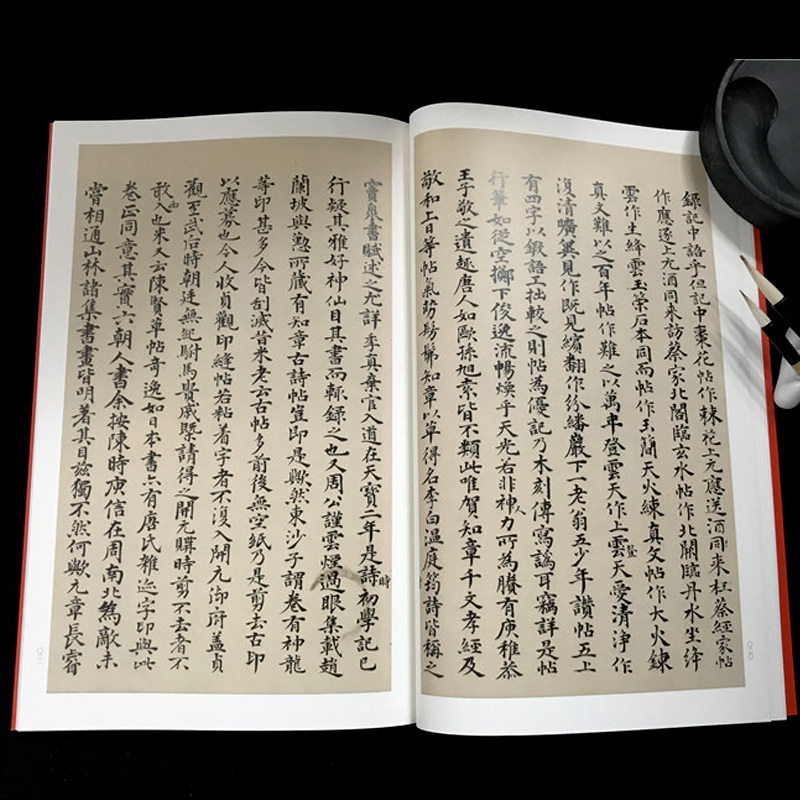 錄記中語乎但記中棗花帖作棘花上元應送酒同來枉蔡經家帖
作應逐上元酒同來訪蔡家北閣臨玄水帖作北闕臨丹水坐絳
雲作生絳雲玉策石本同而帖作玉簡天火練真文帖作大火鍊
真文難以之百年帖作難之以萬年登雲天作上雲天登愛清淨作
復清曠異見作既見繽翻作紛繙巖下一老翁五少年讚帖五上
有四字以鍛語工拙較之則帖為優記乃木刻傳寫譌耳竊詳是帖
行筆如從空擲下俊逸流暢煥乎天光若非神人力所為賸有庾稚恭
王子敬之遺趣唐人如歐孫旭素皆不類此唯賀知章千文孝經及
敬和上日等帖氣勢髣髴知章以草得名李白溫庭筠詩皆稱之
竇臮書賦述之尤詳季真棄官入道在天寶二年是詩時初學記已
行疑其雅好神仙目其書而輒錄之也又周公謹雲煙過眼集載趙
蘭坡與懃所藏有知章古詩帖豈即是歟然東沙子謂卷有神龍
等印甚多今皆刮滅昔米老云古帖多前後無空紙乃是剪去古印
以應募也今人收貞觀印縫帖若粘着字者不復入開元御府蓋貞
觀至武后時朝廷無紀駙馬貴戚槩請得之開元購時剪不去者不
敢入也米又云陳賢草帖奇逸如日本書亦有唐氏雜迹字印與此
卷正同意其實六朝人書余按陳時庾信在周南北為敵未
嘗相通山林諸集書畫皆明著其目茲獨不然何歟元章長睿